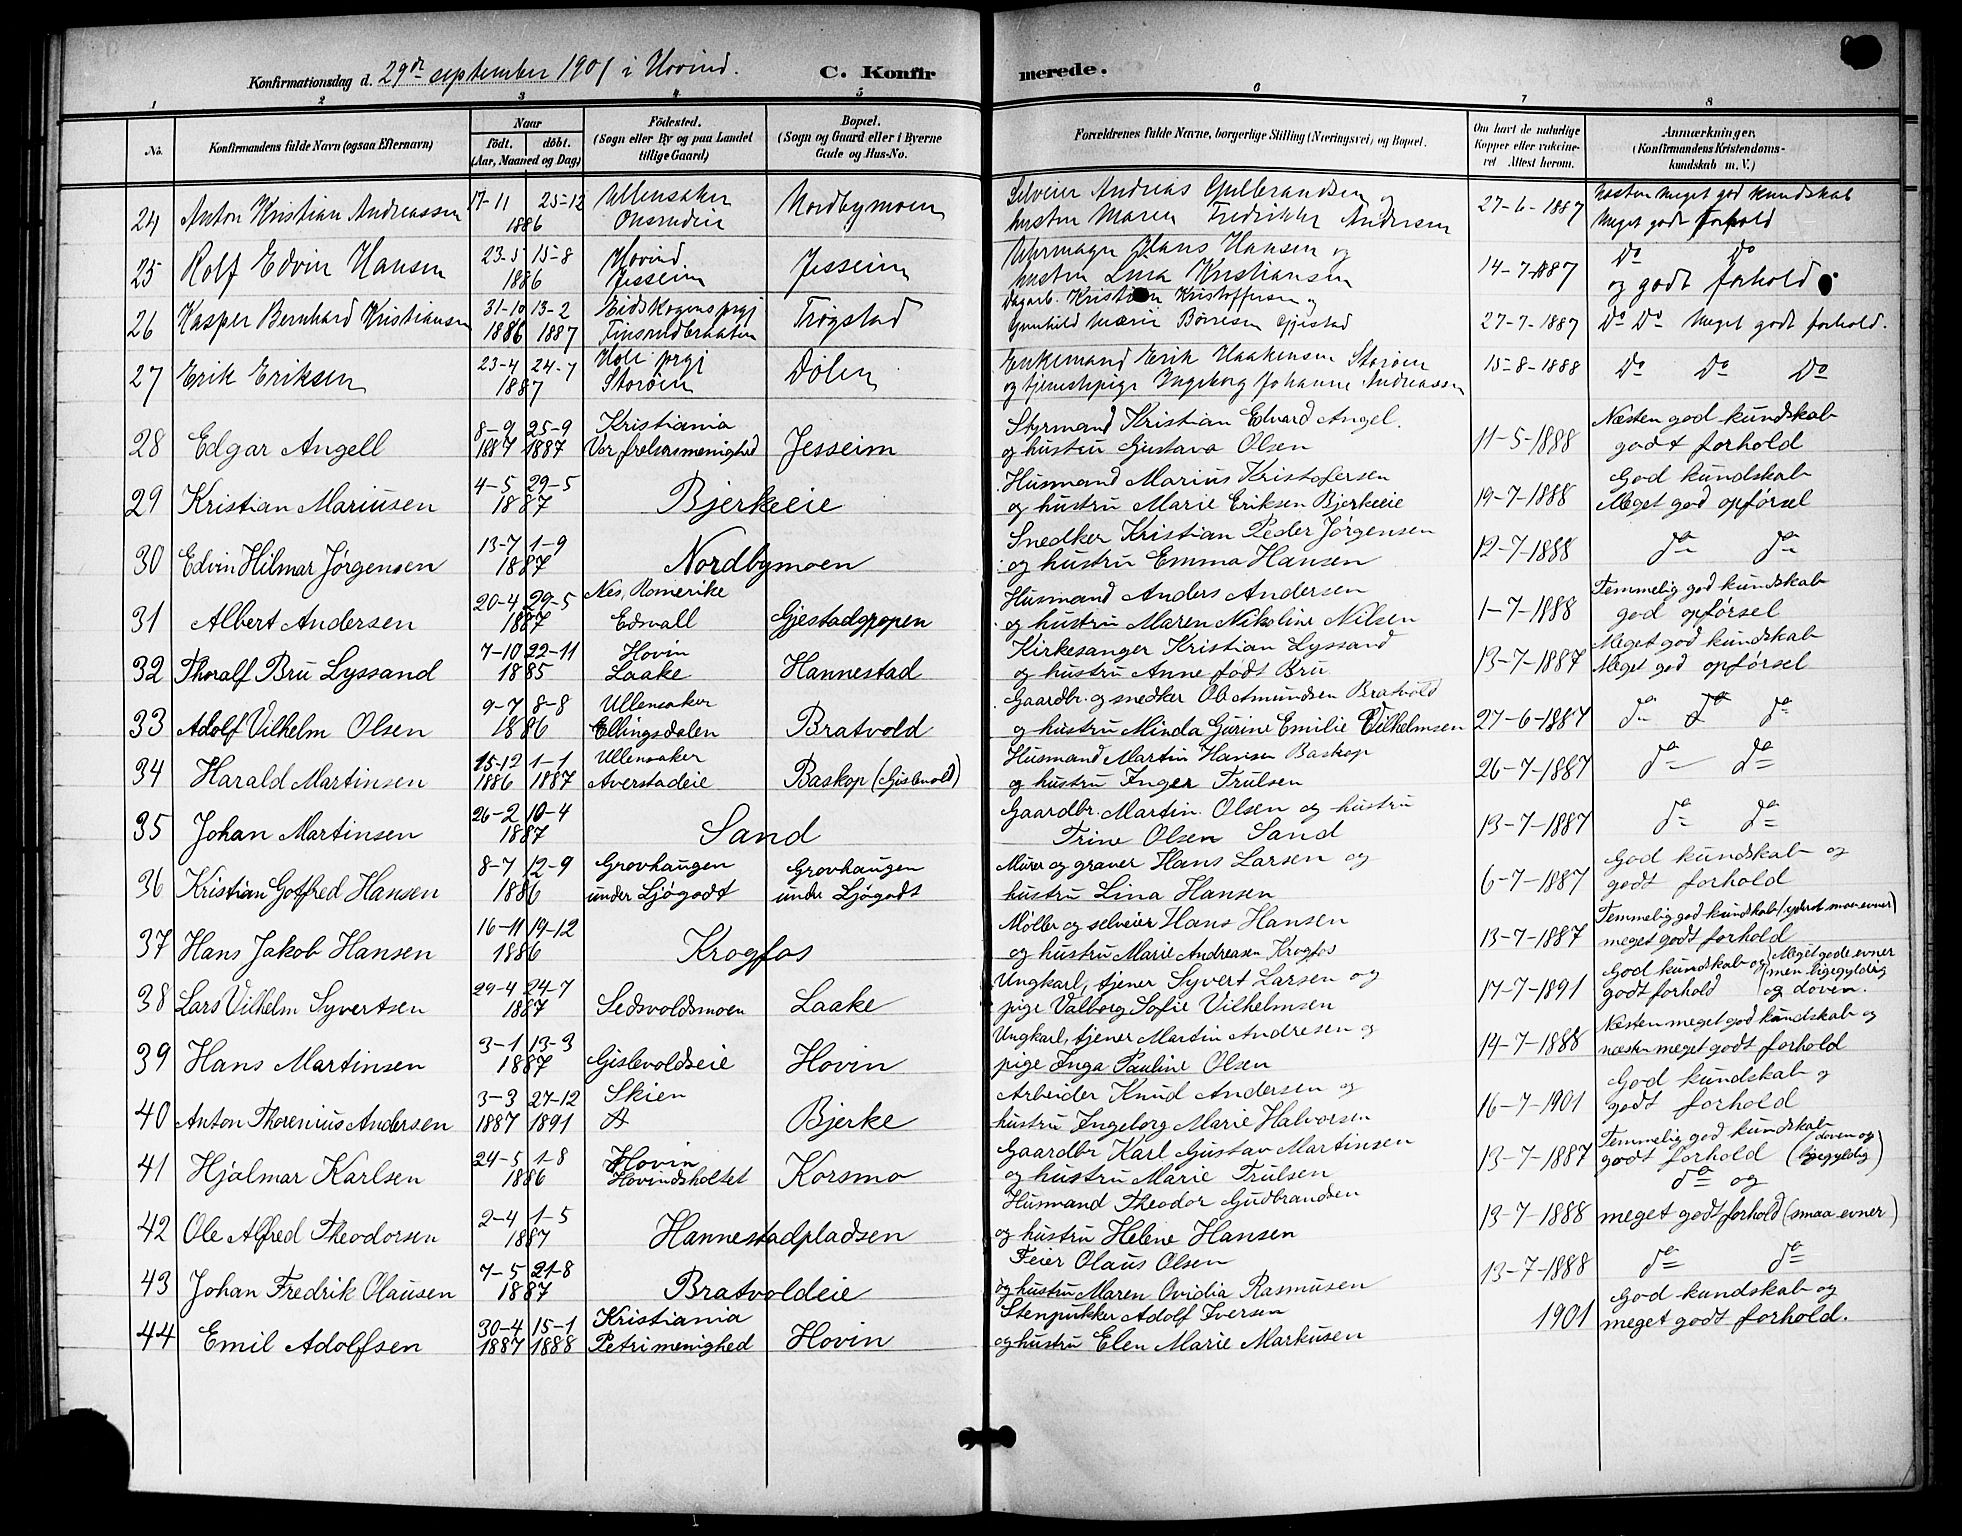 Konfirmationsdag d. 29de september 1901 i Hovind. C. Konfirmerede.
1 2 3 4 5 6 7 8
No. Konfirmandens fulde Navn (ogsaa Efternavn) Naar födt. döbt. (Aar, Maaned og Dag) Födested. (Sogn eller By og paa Landet tillige Gaard) Bopæl. (Sogn og Gaard eller i Byerne Gade og Hus-No. Forældrenes fulde Navne, borgerlige Stilling (Næringsvei) og Bopæl. Om havt de naturlige Kopper eller vakcineret Attest herom. Anmærkninger, (Konfirmandens Kristendomskundskab m. V.)
24 Anton Kristian Andreassen 17-11 25-12 1886 Ullensaker Nordbymoen Selveier Andreas Gulbrandsen og hustru Maren Fredrikke Andersen 27-6-1887 næsten meget god kundskab meget godt forhold
25 Rolf Edvin Hansen 23-5 15-8 1886 Hovind Jesseim Jesseim Uhrmager Hans Hansen og hustru Lina Kristiansen 14-7-1887 Do Do og godt forhold
26 Kasper Bernhard Kristiansen 31-10 1886 13-2 1887 Eidskogens prgj Trøgstad Dagarb. Kristian Kristoffersen og Gunhild Marie Børresen Gjestad 27-7-1887 Do Do meget godt forhold.
27 Erik Eriksen 23-4 24-7 1887 Hole prgj Storøen Dølen Enkemand Erik Haakensen Storøen og tjenestepige Ingeborg Johanne Andreassen 15-8-1888 Do Do Do
28 Edgar Angell 8-9 1887 25-9 1887 Kristiania Vor frelsersmenighed Jesseim Styrmand Kristian Edvard Angel. og hustru Gustava Olsen 11-5-1888 Næsten god kundskab godt forhold
29 Kristian Mariusen 4-5 29-5 1887 Bjerkeeie Husmand Marius Kristofersen og hustru Marie Eriksen Bjerkeeie 19-7-1888 God kundskab Meget god opførsel
30 Edvin Hilmar Jørgensen 13-7 1-9 1887 Nordbymoen Snedker Kristian Peder Jørgensen og hustru Emma Hansen 12-7-1888 do do
31 Albert Andersen 20-4 29-5 1887 Nes, Romerike Edvall Gjestadgropen Husmand Anders Andersen og hustru Maren Nikoline Nilsen 1-7-1888 Temmelig god kundskab god opførsel
32 Thoralf Bru Lyssand 7-10 22-11 1885 Hovin Laake Hannestad Kirkesanger Kristian Lyssand og hustru Anne født Bru 13-7-1887 Meget god kundskab Meget god opførsel
33 Adolf Vilhelm Olsen 9-7 8-8 1886 Ullensaker Ellingsdalen Bratvold Gaardbr. og snedker Ole Amundsen Bratvold og hustru Minda Gurine Emilie Vilhelmsen 27-6-1887 do do do
34 Harald Martinsen 15-12 1886 1-1 1887 Ullensaker Averstadeie Baskop (Gislevold) Husmand Martin Hansen Baskop og hustru Inger Trulsen 26-7-1887 do do
35 Johan Martinsen 26-2 10-4 1887 Sand Gaardbr. Martin Olsen og hustru Trine Olsen Sand 13-7-1887 do do
36 Kristian Gotfred Hansen 8-7 12-9 1886 Grovhaugen under Ljøgodt Grovhaugen under Ljøgodt Murer og graver Hans Larsen og hustru Lina Hansen 6-7-1887 God kundskab og godt forhold
37 Hans Jakob Hansen 16-11 19-12 1886 Krogfos Møller og selveier Hans Hansen og hustru Marie Andreasen Krogfos 13-7-1887 Temmelig god kundskab (yderst smaa evner) meget godt forhold
38 Lars Vilhelm Syvertsen 29-4 24-7 1887 Sedsvoldsmoen Laake Ungkarl, tjener Syvert Larsen og pige Valborg Sofie Vilhelmsen 17-7-1891 God kundskab og godt forhold (Meget gode evner men ligegyldig og doven.
39 Hans Martinsen 3-1 13-3 1887 Gislevoldseie Hovin Ungkarl, tjener Martin Andresen og pige Inga Pauline Olsen 14-7-1888 Næsten meget god kundskab og næsten meget godt forhold
40 Anton Thorenius Andersen 3-3 1887 27-12 1891 Skien Bjerke Arbeider Knud Andersen og hustru Ingeborg Marie Halvorsen 16-7-1901 God kundskab og godt forhold
41 Hjalmar Karlsen 24-5 1-8 1886 Hovin Hovindsholtet Korsmo Gaardbr Karl Gustav Martinsen og hustru Marie Trulsen 13-7-1887 Temmelig god kundskab godt forhold (doven og ligegyldig)
42 Ole Alfred Theodorsen 2-4 1-5 1887 Hannestadpladsen Husmand Theodor Gudbrandsen og hustru Helene Hansen 13-7-1888 do og meget godt forhold (smaa evner)
43 Johan Fredrik Olausen 7-5 21-8 1887 Bratvoldeie Feier Olaus Olsen og hustru Maren Ovidia Rasmusen 13-7-1888 do do
44 Emil Adolfsen 30-4 1887 15-1 1888 Kristiania Petri menighed Hovin Stenpukker Adolf Iversen og hustru Elen Marie Markusen 1901 God kundskab og meget godt forhold.